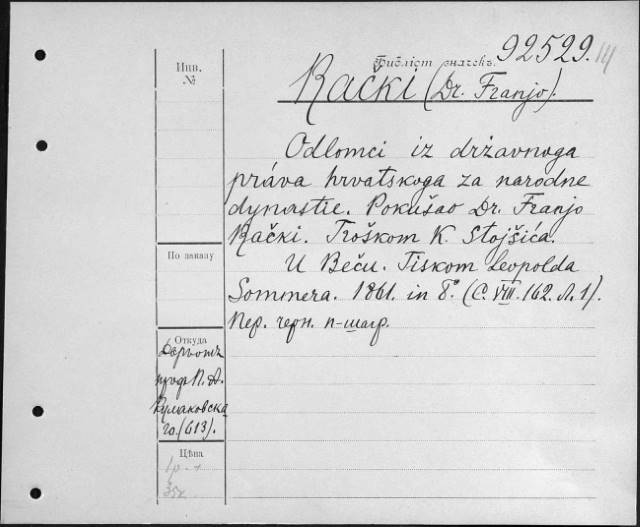 Библіот. значекъ. 92529.
Инв.
№
Rački (Dr. Franjo).
Odlomci iz državnoga
práva hrvatskoga za narodne
dynastie. Pokušao Dr. Franjo
Rački. Troškom K. Stojšića.
U Beču. Tiskom Leopolda
Sommera. 1861. in 8.° (C. VIII. 162. Л. 1).
Пер. черн. п-шагр.
По заказу
Откуда
проф. П. А.
Кулаковска
го. (613).
Цѣна
1р.
35к.